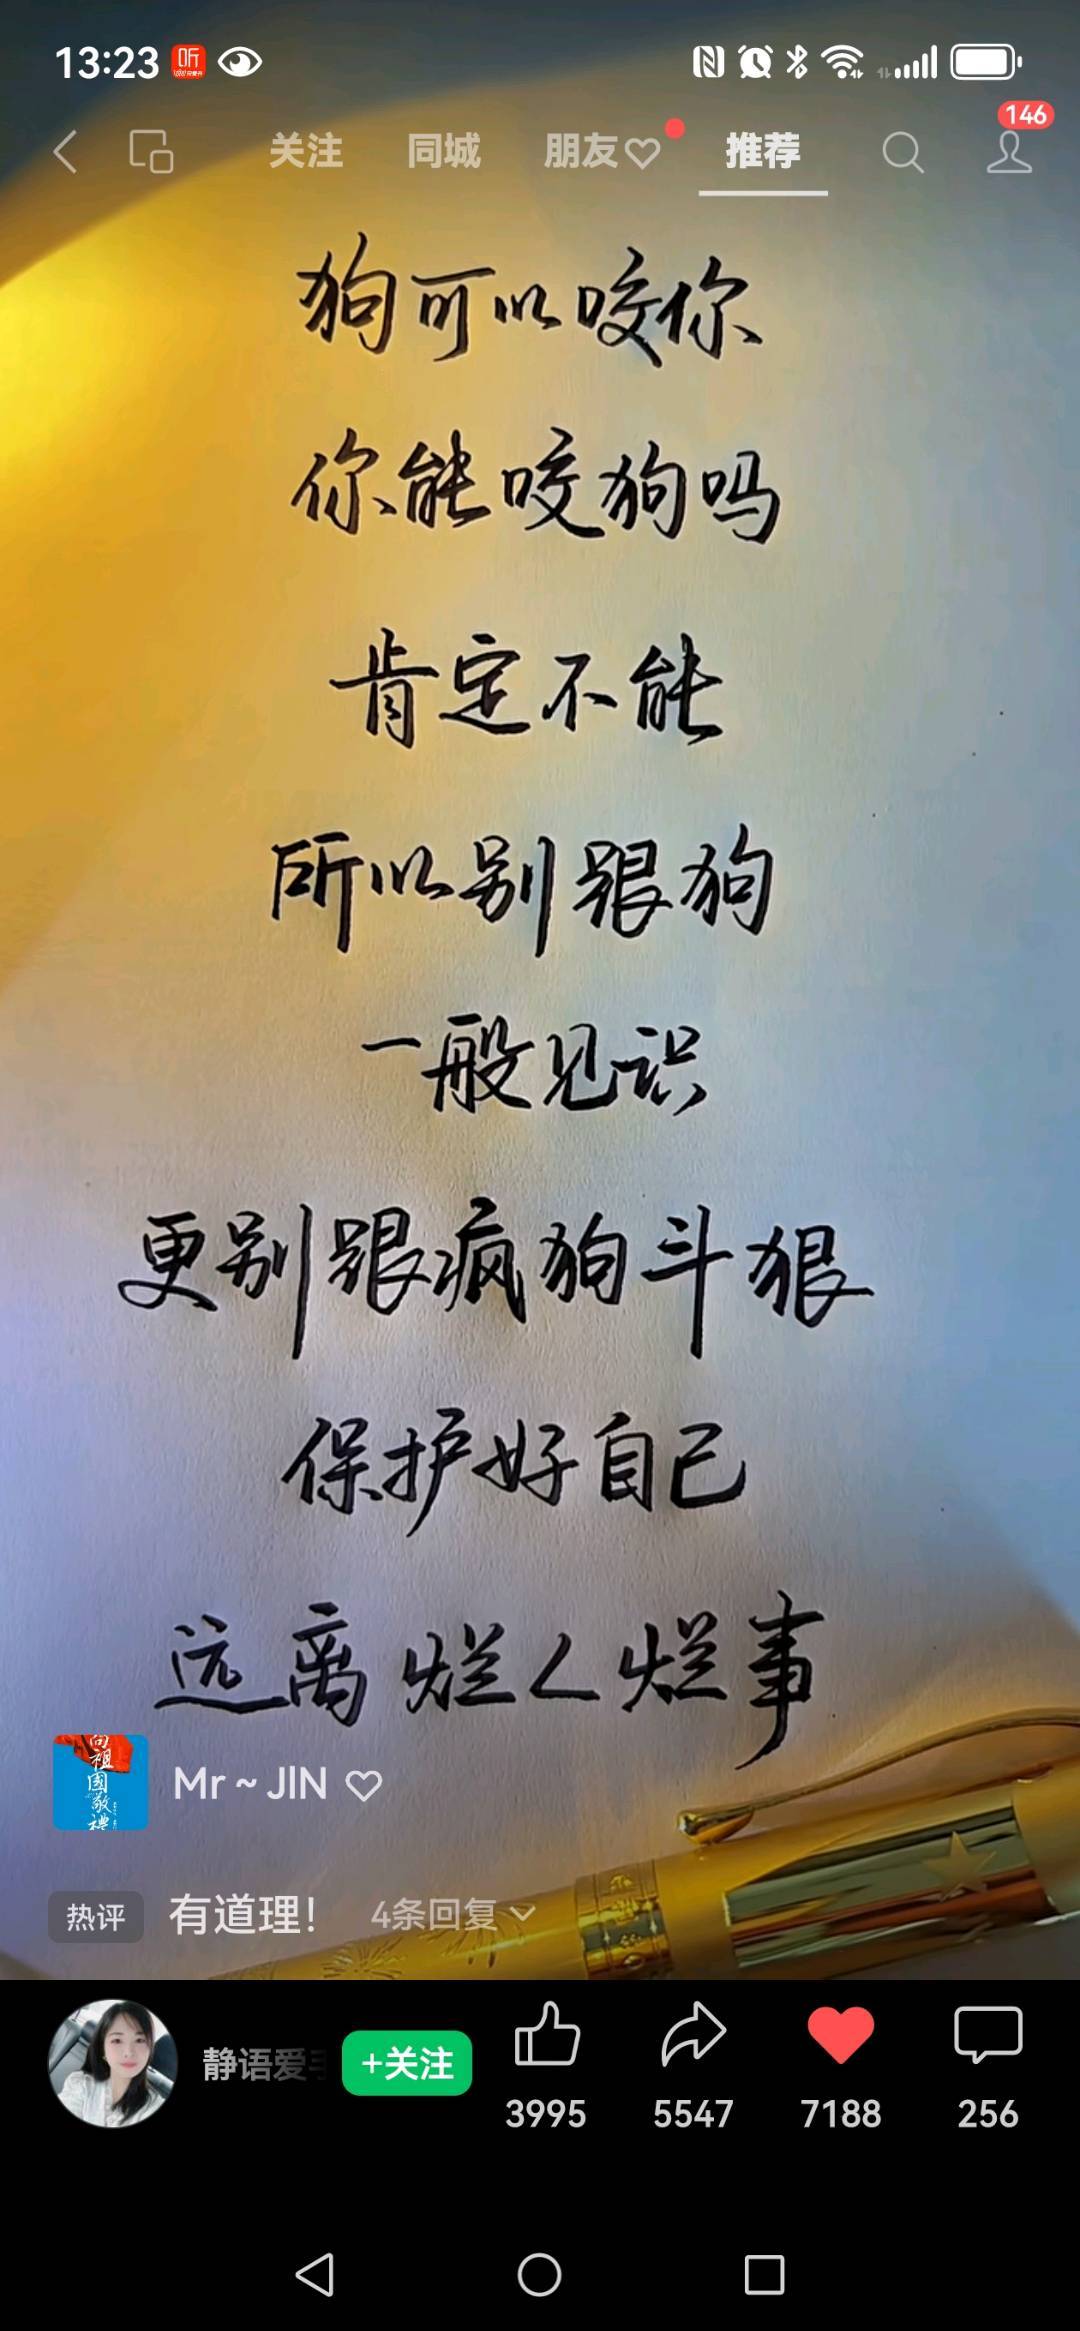 13:23 听
146
关注 同城 朋友 推荐
狗可以咬你
你能咬狗吗
肯定不能
所以别跟狗
一般见识
更别跟疯狗斗狠
保护好自己
远离烂人烂事
向祖國敬禮
Mr~JIN
热评 有道理! 4条回复
静语爱手 +关注
3995 5547 7188 256